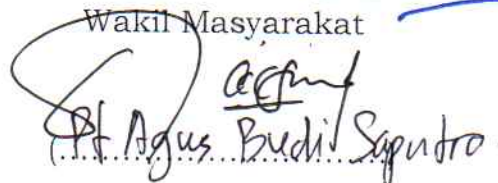 Wakil Masyarakat
(Pt Agus Budi Saputro